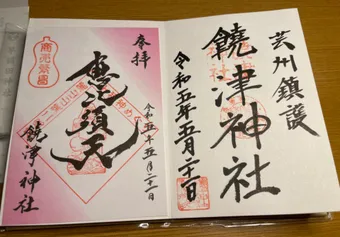 芸州鎮護
饒津神社
令和五年五月二十一日
奉拝
恵比須天
令和五年五月二十一日
饒津神社